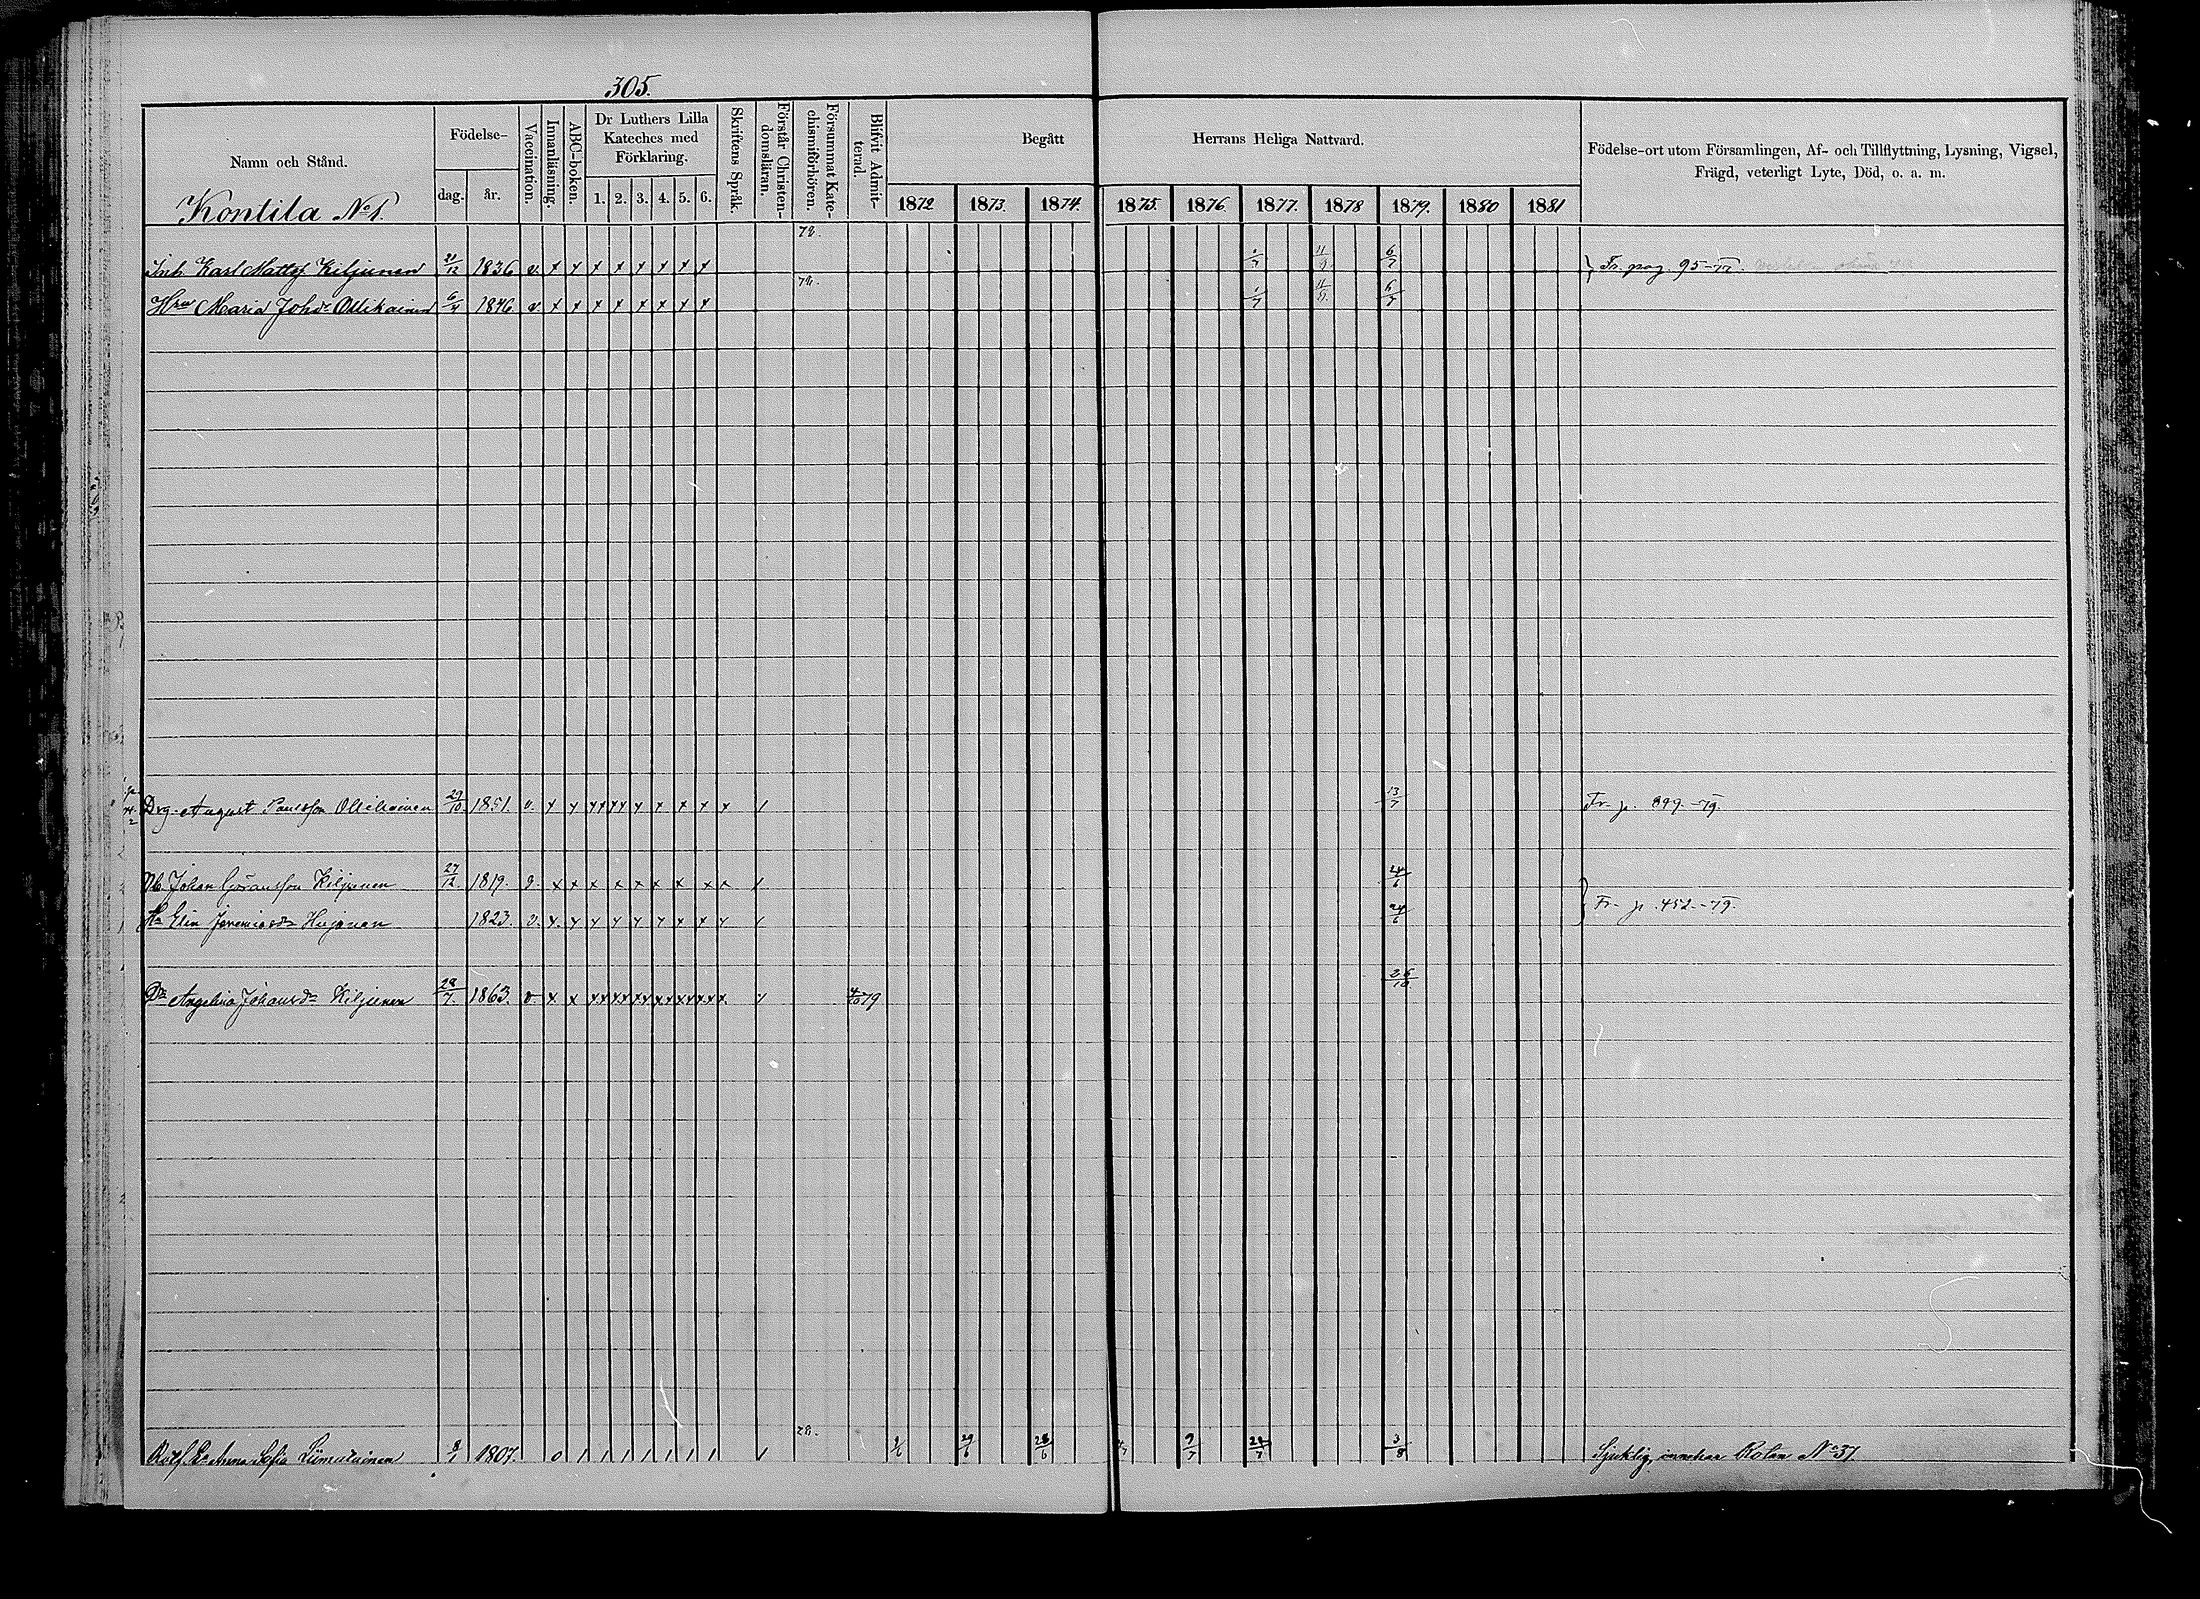 305.
Namn och Stånd.
Födelse-
dag.
år.
Vaccination.
Innanläsning.
ABC-boken.
Dr Luthers Lilla
Kateches med
Förklaring.
1. 2. 3. 4. 5. 6.
Skriftens Språk.
Förstår Christen-
domsläran.
Försummat Kate-
chismiförhören.
Blifvit Admit-
terad.
Begått Herrans Heliga Nattvard.
1872 1873. 1874. 1875. 1876. 1877. 1878 1879. 1880 1881
Födelse-ort utom Församlingen, Af- och Tillflyttning, Lysning, Vigsel,
Frägd, veterligt Lyte, Död, o. a. m.
Kontila No 1.
78.
Inh. Karl Mattss Kiljunen 21/12 1836 v. x x x x x x x x 1/7 11/9 6/7 Fr. pag. 95-77.
78.
Hru Maria Johdr Ollikainen 6/4 1846. v. x x x x x x x x 1/7 11/9 6/7
Drg. August Paulsson Ollikainen 29/10 1851. v. x x xx xx x x x x x / 13/7 Fr. p. 899.-79.
Johan Göransson Kiljunen 27/12 1819. v. x x x x x x x x x / 24/6
Elin Jeremiasdr 1823. v. x x x x x x x x x / 24/6 Fr. p. 452.-79.
Dr Angelina Johansdr Kiljunen 28/7. 1863. v. x x xx xx xx xx xx xx x / 4/10 79 26/10
78.
Anna Sofia 8/1 1807. 0 / / / / / / / / / 2/6 29/6 28/6 9/7 22/7 3/8 Sjuklig, innehar Rolan No 37.